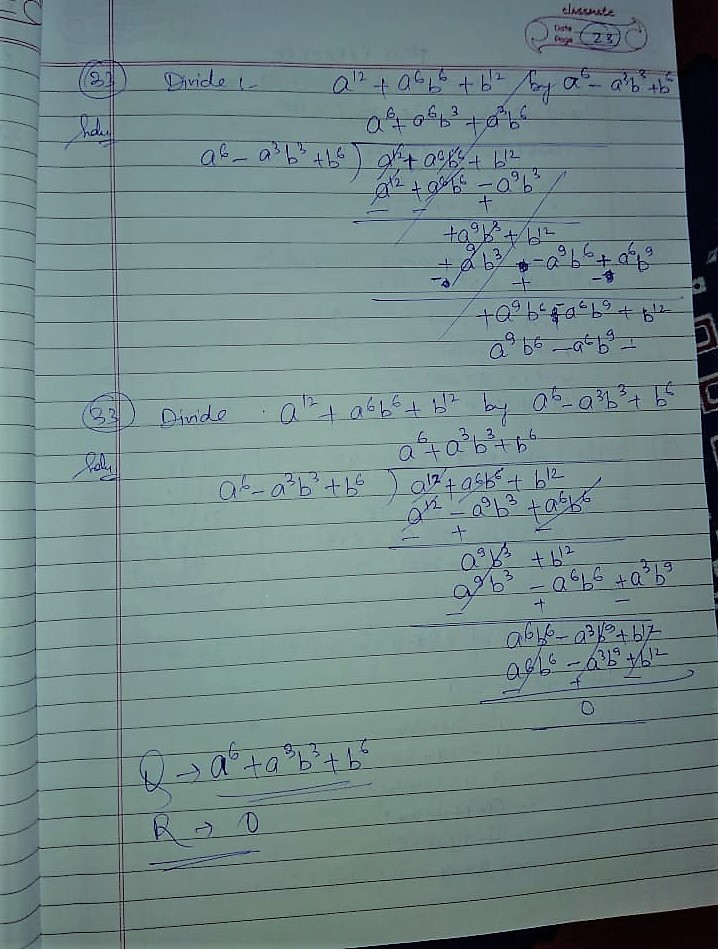 classmate
Date
Page 23
33 Divide :- a¹² + a⁶b⁶ + b¹² by a⁶ - a³b³ + b⁶
Soln
a⁶ + a⁶b³ + a³b⁶
a⁶ - a³b³ + b⁶ ) a¹² + a⁶b⁶ + b¹²
a¹² + a⁶b⁶ - a⁹b³
- - +
+a⁹b³ + b¹²
+ a⁹b³ - a⁹b⁶ + a⁶b⁹
- + -
+a⁹b⁶ - a⁶b⁹ + b¹²
a⁹b⁶ - a⁶b⁹ -
33 Divide a¹² + a⁶b⁶ + b¹² by a⁶ - a³b³ + b⁶
Soln
a⁶ + a³b³ + b⁶
a⁶ - a³b³ + b⁶ ) a¹² + a⁶b⁶ + b¹²
a¹² - a⁹b³ + a⁶b⁶
- + -
a⁹b³ + b¹²
a⁹b³ - a⁶b⁶ + a³b⁹
- + -
a⁶b⁶ - a³b⁹ + b¹²
a⁶b⁶ - a³b⁹ + b¹²
- + -
0
Q → a⁶ + a³b³ + b⁶
R → 0